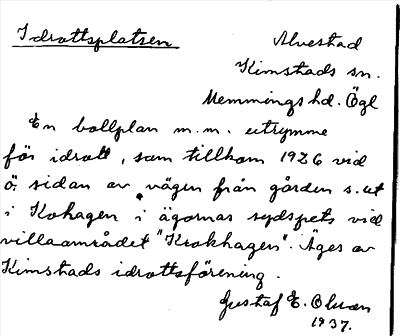 Idrottsplatsen
Alvestad
Kimstads sn.
Memmings hd. Ögl
En bollplan m.m. utrymme
för idrott, som tillkom 1926 vid
ö. sidan av vägen från gården s. ut
i Kohagen i ägornas sydspets vid
villaområdet "Krokhagen". Äges av
Kimstads idrottsförening.
Gustaf E. Olsson
1937.